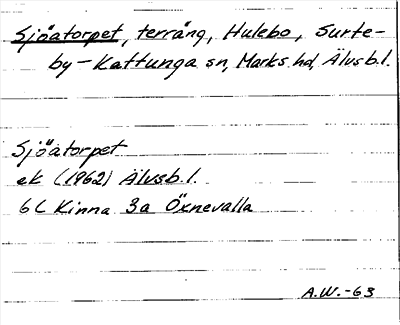 Sjöatorpet, terräng, Hulebo, Surte-
by-Kattunga sn, Marks hd, Älvsb.l.
Sjöatorpet
ek (1962) Älvsb.l.
6C Kinna 3a Öxnevalla
A.W.-63